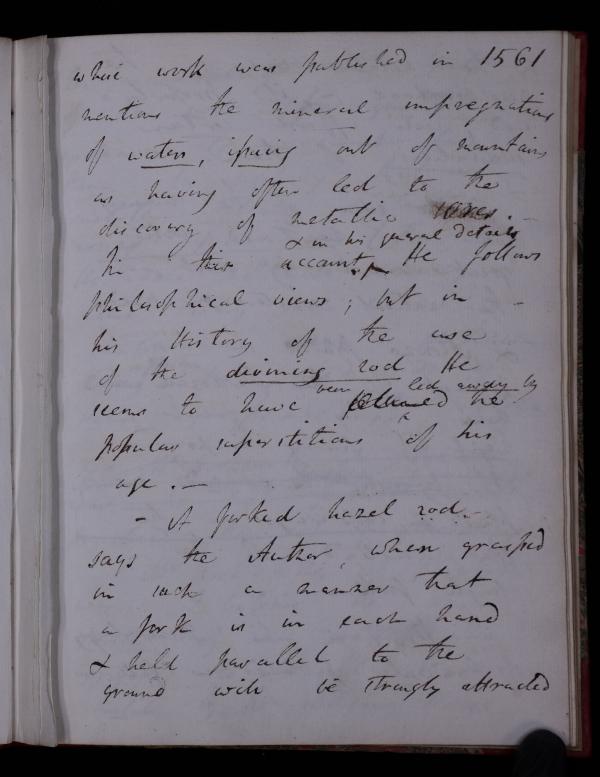 whose work was published in 1561
mentions the mineral impregnations
of waters, issuing out of mountains
as having often led to the
discovery of metallic veins. —
& in his general details
In this account He follows
philosophical views; but in
his History of the use
of the divining rod He
been led away by
seems to have followed the
popular superstitions of his
age. —
– A forked hazel rod
says the Author, when grasped
in such a manner that
a fork is in each hand
& held parallel to the
ground will be strongly attracted